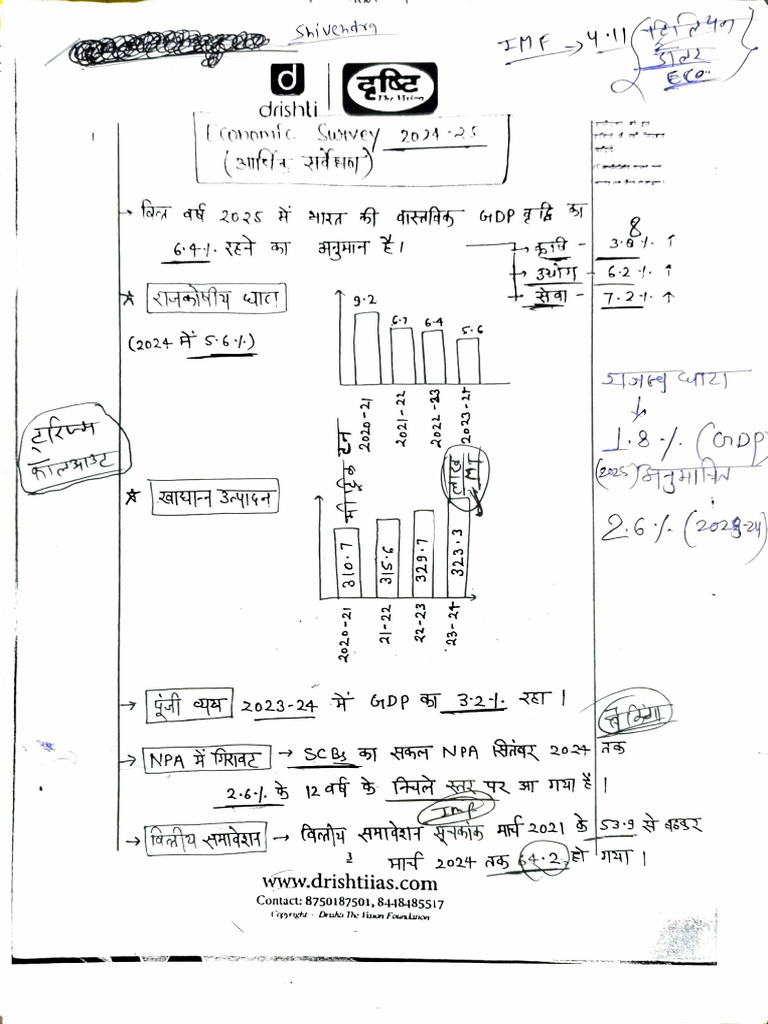 Shivendra
IMF → 4.11 ट्रिलियन
डालर
ECO..
drishti
दृष्टि
The Vision
Economic Survey 2024-25
(आर्थिक सर्वेक्षण)
→ वित्त वर्ष 2025 में भारत की वास्तविक GDP वृद्धि का
6.4% रहने का अनुमान है।
→ कृषि - 3.8% ↑
8
→ उद्योग - 6.2% ↑
→ सेवा - 7.2% ↑
★ राजकोषीय घाटा
(2024 में 5.6%)
9.2
6.7
6.4
5.6
2020-21
2021-22
2022-23
2023-24
राजस्व घाटा
↓
1.8% (GDP)
(2025) अनुमानित
2.6% (2023-24)
टूरिज्म
★ खाद्यान्न उत्पादन
मीट्रिक टन
लाख
MT
310.7
315.6
329.7
323.3
2020-21
21-22
22-23
23-24
→ पूंजी व्यय 2023-24 में GDP का 3.2% रहा।
→ NPA में गिरावट → SCBs का सकल NPA सितंबर 2024 तक
2.6% के 12 वर्ष के निचले स्तर पर आ गया है।
IMF
→ वित्तीय समावेशन → वित्तीय समावेशन सूचकांक मार्च 2021 के 53.9 से बढ़कर
मार्च 2024 तक 64.2 हो गया।
3
www.drishtiias.com
Contact: 8750187501, 8448485517
Copyright - Drishti The Vision Foundation